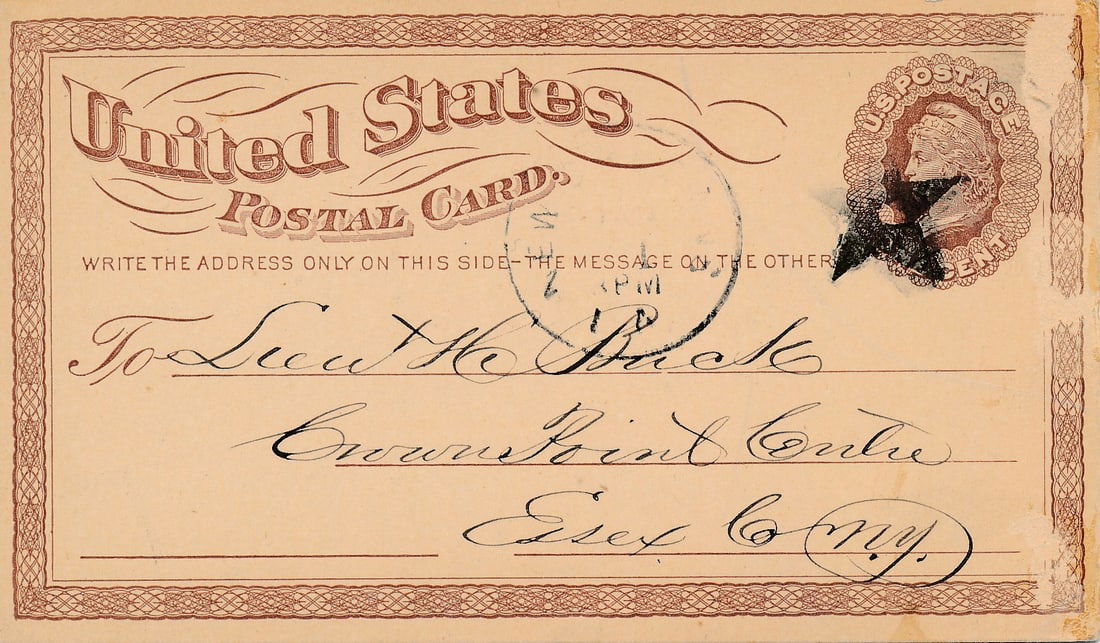 United States
POSTAL CARD.
U.S. POSTAGE
CENT
WRITE THE ADDRESS ONLY ON THIS SIDE-THE MESSAGE ON THE OTHER
PM
To Lieut H Buck
Crown Point Centre
Essex Co N.Y.